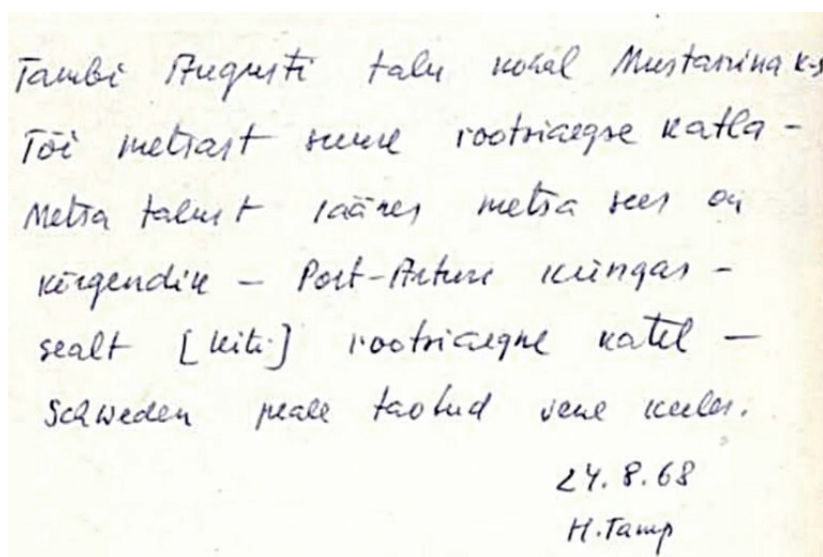 Tambi Augusti talu kohal Mustanina k-s
Tõi metsast suure rootsiaegse katla -
Metsa talust läänes metsa sees on
kõrgendik - Port-Arturi küngas -
sealt [kiti] rootsiaegne katel -
Schweden peale taotud vene keeles.
24.8.68
H. Tamp